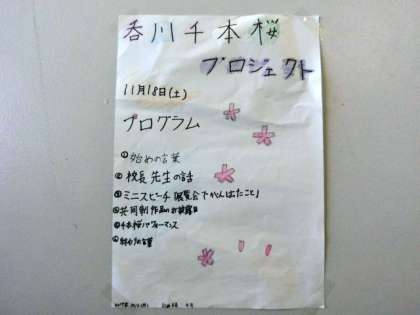 呑川千本桜
プロジェクト
11月18日(土)
プログラム
①始めの言葉
②校長先生の話
③ミニスピーチ「展覧会でがんばたこと」
④共同制作品お披露目
⑤千本桜パフォーマンス
⑥終わりの言葉